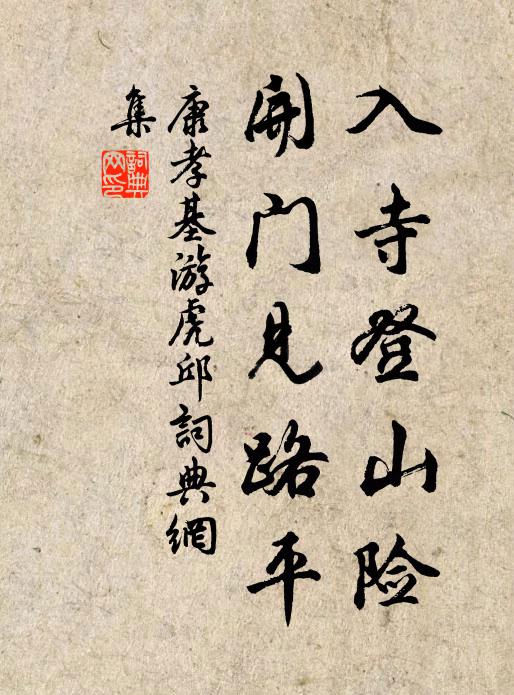 入寺登山险
開门见路平
康孝基游虎邱詞典網
集
詞典
网印